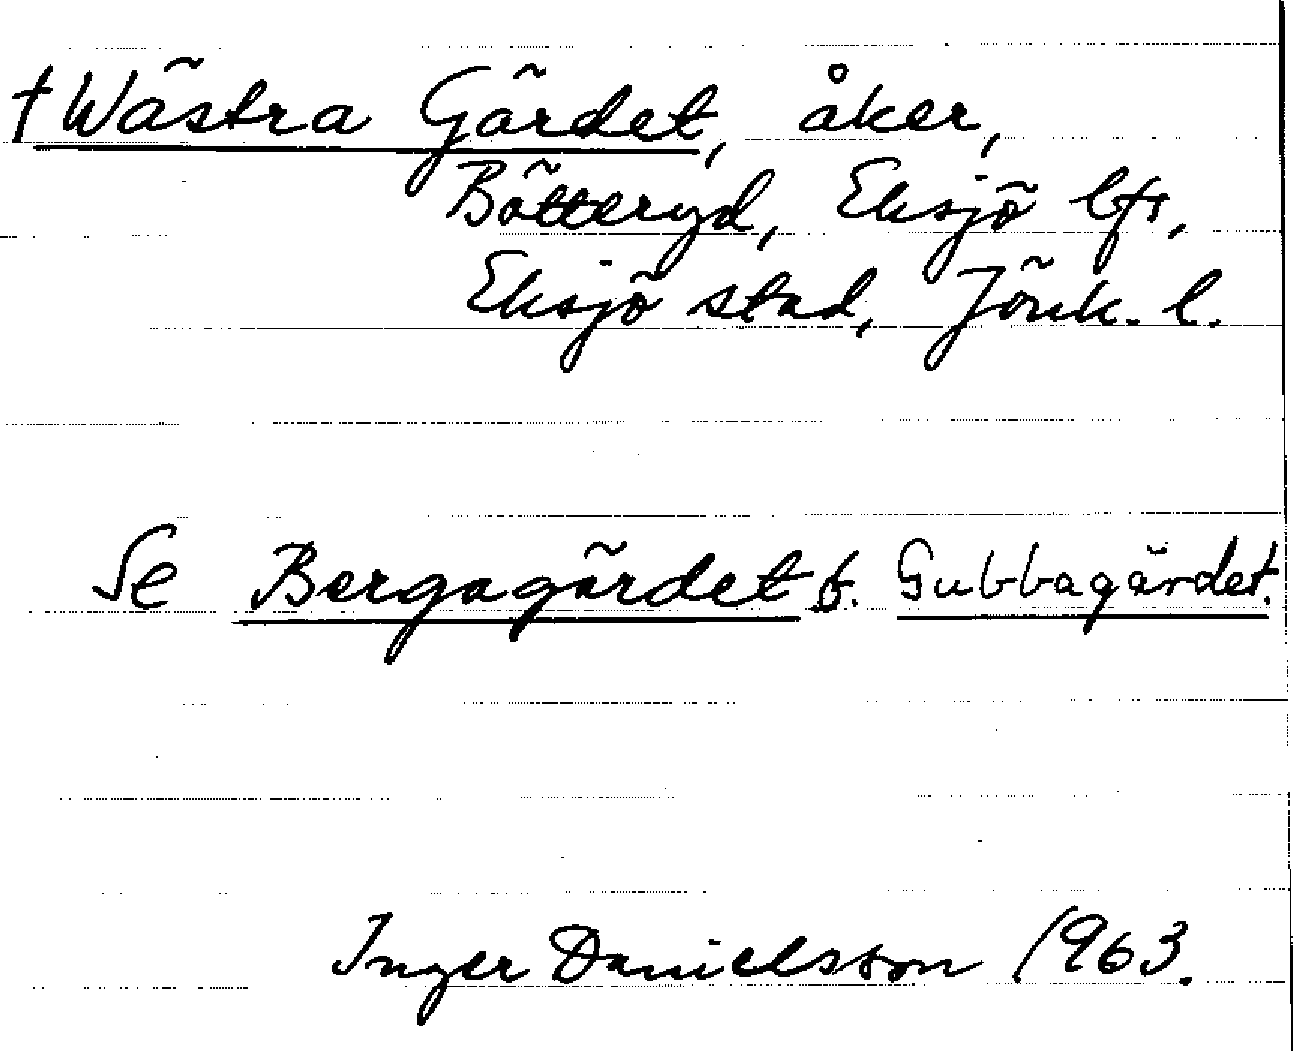 †Wästra Gärdet, åker,
Bötteryd, Eksjö lfs,
Eksjö stad, Jönk. l.
Se Bergagärdet f. Gubbagärdet.
Inger Danielsson 1963.